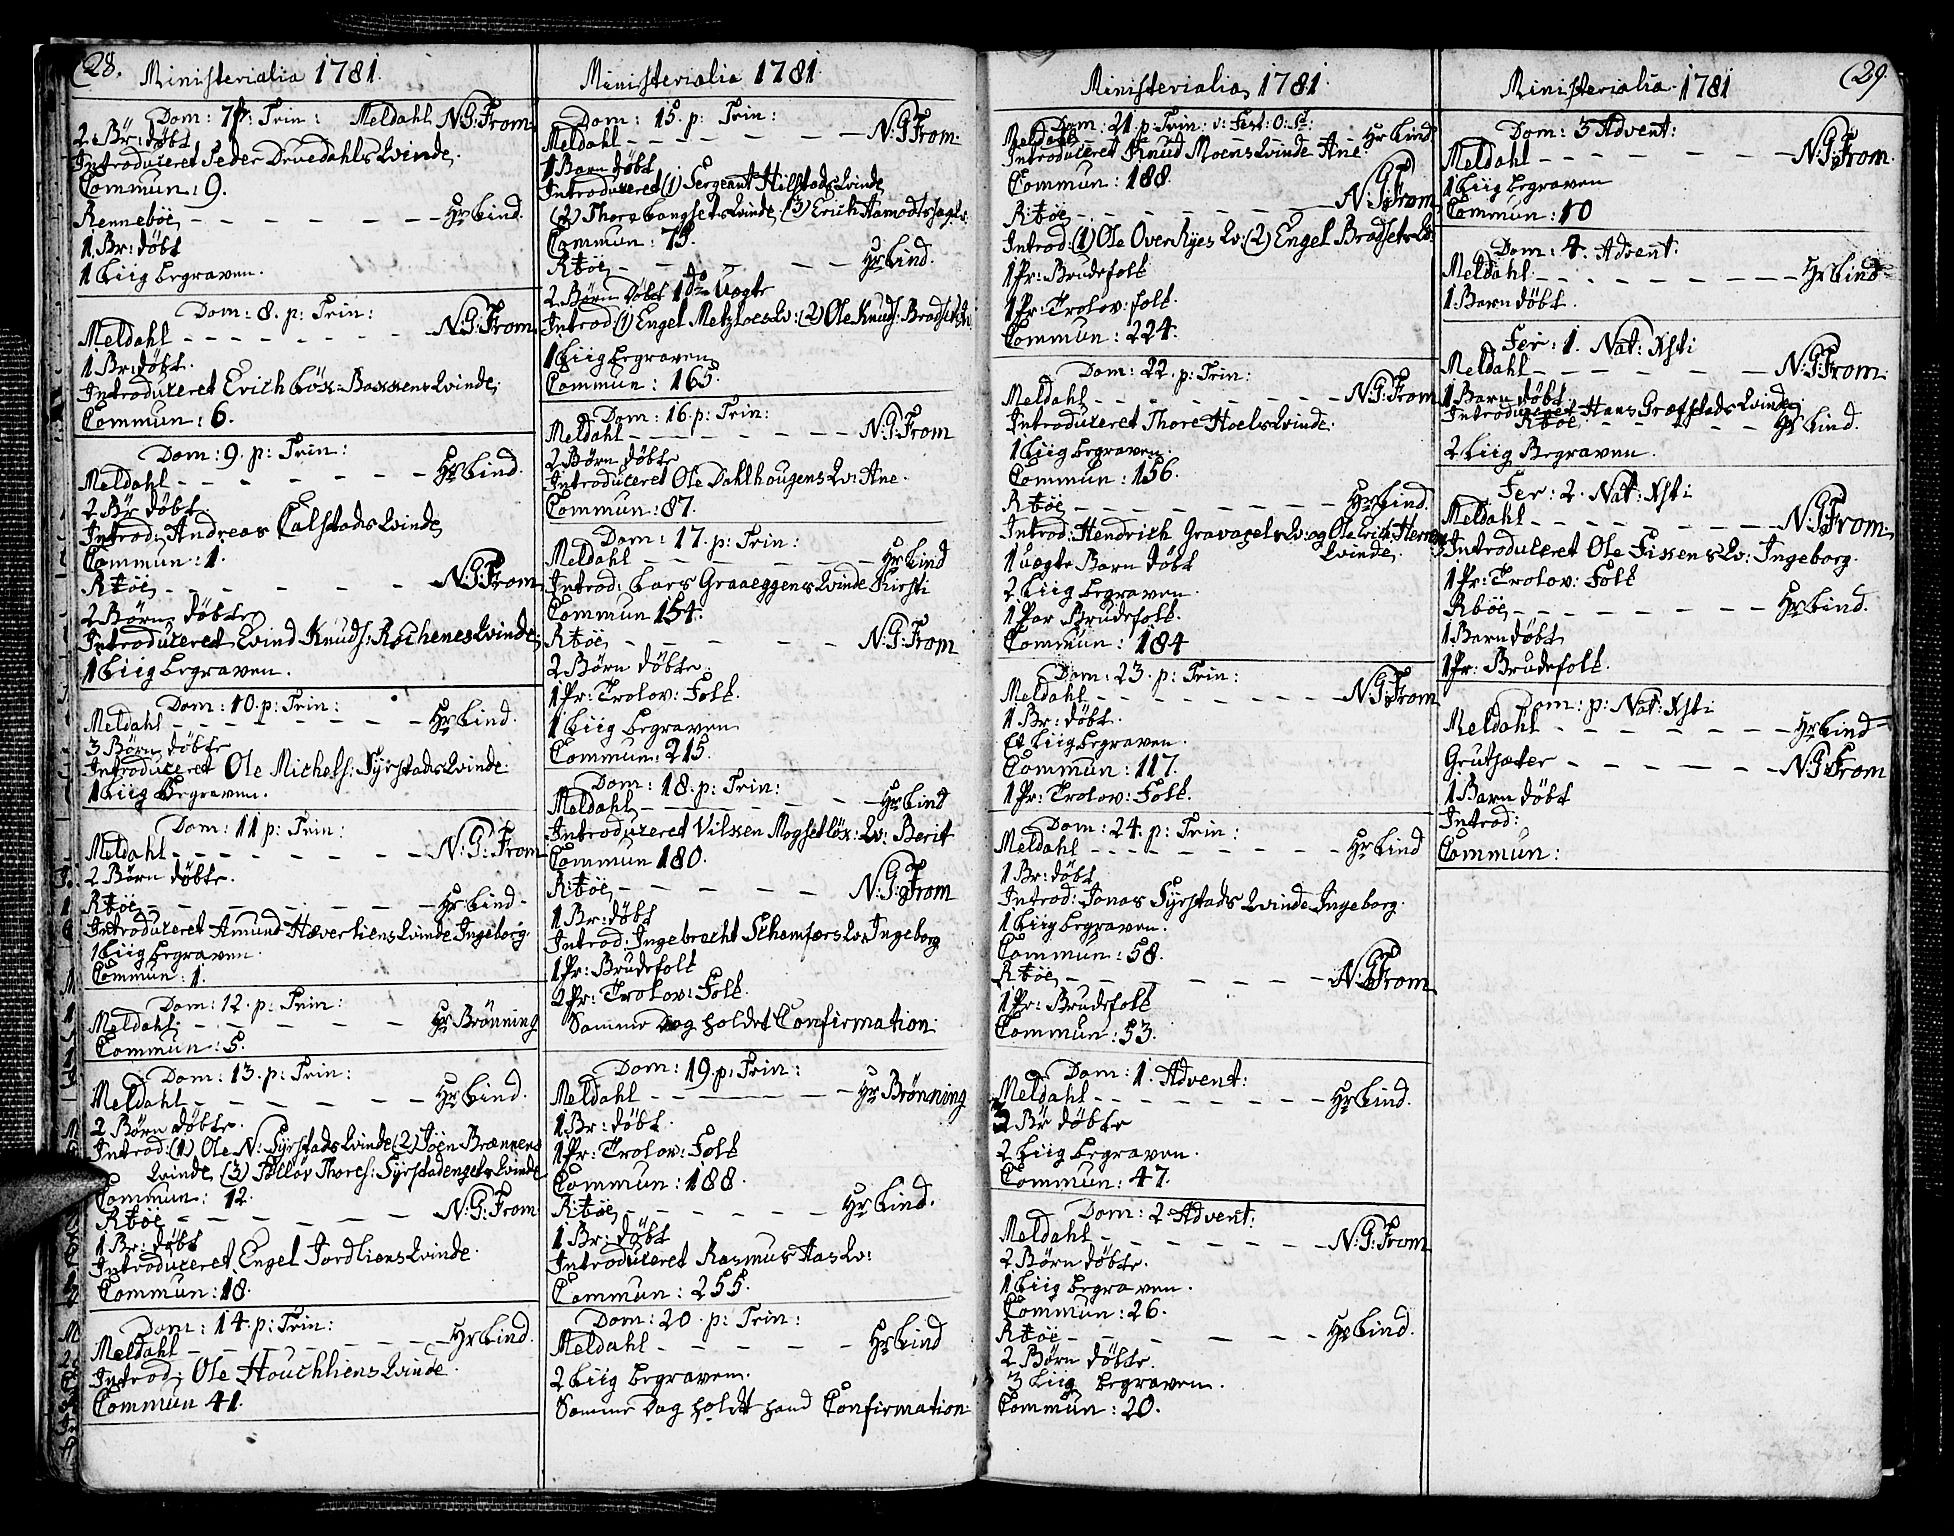 28.
Ministerialia 1781.
Dom: 7 p: Trin: Meldahl N:G:From
2 Bör: döbt
Introduceret Peder Druedahls Qvinde.
Commun: 9.
Renneböe - - - - - - - Hr Lind.
1 Br: döbt
1 Liig begraven.
Dom: 8. p: Trin:
Meldahl - - - - - - - N:G:From
1 Br: döbt.
Introduceret Erich Löx: Qvinde,
Commun: 6.
Dom: 9. p: Trin:
Meldahl - - - - - - - Hr Lind.
2 Br döbt.
Introd: Andreas Calstads Qvinde
Commun: 1.
Rböe - - - - - - N:G:From
2 Börn döbte
Introduceret Evind Knuds: Qvinde,
1 Liig begraven.
Dom: 10. p: Trin:
Meldahl - - - - - - - Hr Lind.
3 Börn döbte
Introduceret Ole Michels: Syrstads Qvinde.
1 Liig begraven.
Dom: 11 p: Trin:
Meldahl - - - - - - - N:G:From
2 Börn döbte.
Rböe - - - - - - - Hr Lind -
Introduceret Amund Hæverliens Qvinde Ingeborg.
1 Liig begraven.
Commun: 1.
Dom: 12. p: Trin:
Meldahl - - - - - - Hr Brönning
Commun: 5.
Dom: 13. p: Trin:
Meldahl - - - - - - Hr Lind.
2 Börn döbte.
Introd: (1) Ole N: Syrstads Qvinde (2) Joen Brænnens
Qvinde, (3) Tollöv Thores: Syrstadengets Qvinde
Commun: 12.
Rböe - - - - - - N:G:From
1 Br: döbt
Introduceret Engel Jordliens Qvinde.
Commun: 18.
Dom: 14. p: Trin:
Meldahl - - - - - - Hr Lind.
Introd: Ole Houchliens Qvinde.
Commun 41.
Ministerialia 1781.
Dom: 15. p: Trin:
Meldahl - - - - - - N:G:From.
1 Barn döbt
Introduceret (1) Sergeant Hilstads Qvinde
(2) Thore Qvinde, (3) Erich Aamodts
Commun: 75.
Rböe - - - - - - Hr Lind.
2 Börn döbt 1 do uægte
Introd: (1) Engel Metzloes Qv: (2) Ole Knuds: Bradsets Qv:
1 Liig begraven
Commun: 165.
Dom: 16. p: Trin:
Meldahl - - - - - - N:G:From
2 Börn döbte
Introduceret Ole Dahlhougens Qv: Ane.
Commun: 87.
Dom: 17. p: Trin:
Meldahl - - - - - - Hr Lind
Introd: Lars Graaeggens Qvinde Kirsti
Commun 154.
Rböe - - - - - - N:G:From
2 Börn döbte.
1 Pr: Trolov: Folk.
1 Liig begraven
Commun: 215.
Dom: 18. p: Trin:
Meldahl - - - - - - Hr Lind
Introduceret Vilken Mogsetlöx: Qv: Berit
Commun 180.
Rböe - - - - - - N:G:From
1 Br: döbt
Introd: Ingebracht Schamfærs Qv: Ingeborg
1 Pr: Brudefolk
2 Pr: Trolov: Folk.
Samme Dag holdet Confirmation.
Dom: 19. p: Trin:
Meldahl - - - - - - Hr Brönning
1 Br: döbt.
1 Pr: Trolov: Folk
Commun: 188.
Rböe - - - - - - Hr Lind.
1 Br: döbt
Introduceret Rasmus Aas Qv:
Commun: 255.
Dom: 20. p: Trin:
Meldahl - - - - - Hr Lind
2 Liig begraven.
Samme Dag holdt hand Confirmation.
Ministerialia 1781
Dom: 21. p: Trin: v: Fest: O: St:
Meldahl Hr Lind.
Introduceret Knud Moens Qvinde Ane
Commun: 188.
Rböe - - - - - - N:G:From
Introd: (1) Ole Overhyes Qv: (2) Engel Bradsets Qv:
1 Pr: Brudefolk
1 Pr: Trolov: folk.
Commun: 224.
Dom: 22. p: Trin:
Meldahl - - - - - - N:G:From
Introduceret Thore Hoels Qvinde.
1 Liig begraven.
Commun: 156.
Rböe - - - - - - Hr Lind.
Introd: Hendrich Gravaxels Qv: og Ole
Qvinde.
1 uægte Barn döbt
2 Liig begraven.
1 Par Brudefolk.
Commun: 184
Dom: 23. p: Trin:
Meldahl - - - - - - N:G:From
1 Br: döbt.
Et Liig begraven.
Commun: 117.
1 Pr: Trolov: Folk.
Dom: 24. p: Trin:
Meldahl - - - - - - Hr Lind
1 Br: döbt
Introd: Jonas Syrstads Qvinde Ingeborg.
1 Liig begraven.
Commun: 58.
Rböe - - - - - - N:G:From
1 Pr: Brudefolk
Commun: 53.
Dom: 1. Advent:
Meldahl - - - - - - Hr Lind.
3 Br döbte
2 Liig begraven.
Commun: 47.
Dom: 2 Advent:
Meldahl - - - - - - N:G:From
2 Börn döbte.
1 Liig begraven.
Commun: 26.
Rböe - - - - - - Hr Lind.
2 Börn döbte.
3 Liig begraven.
Commun: 20.
Ministerialia 1781
29.
Dom: 3 Advent:
Meldahl - - - - - - N:G:From.
1 Liig begraven
Commun: 10
Dom: 4. Advent:
Meldahl - - - - - - Hr Lind
1 Barn döbt.
Fer: 1. Nat: Xsti
Meldahl - - - - - - N:G:From.
1 Barn döbt
Introduceret Hans Græfstads Qvinde.
Rböe - - - - - Hr Lind.
2 Liig Begraven.
Fer: 2. Nat: Xsti
Meldahl - - - - - - N:G:From.
Introduceret Ole Qv: Ingeborg.
1 Pr: Trolov: Folk
Rböe - - - - - - Hr Lind.
1 Barn döbt
1 Pr: Brudefolk.
Dom: p: Nat: Xsti
Meldahl - - - - - - Hr Lind
Grutsæter - - - - - N:G:From
1 Barn döbt
Introd:
Commun: